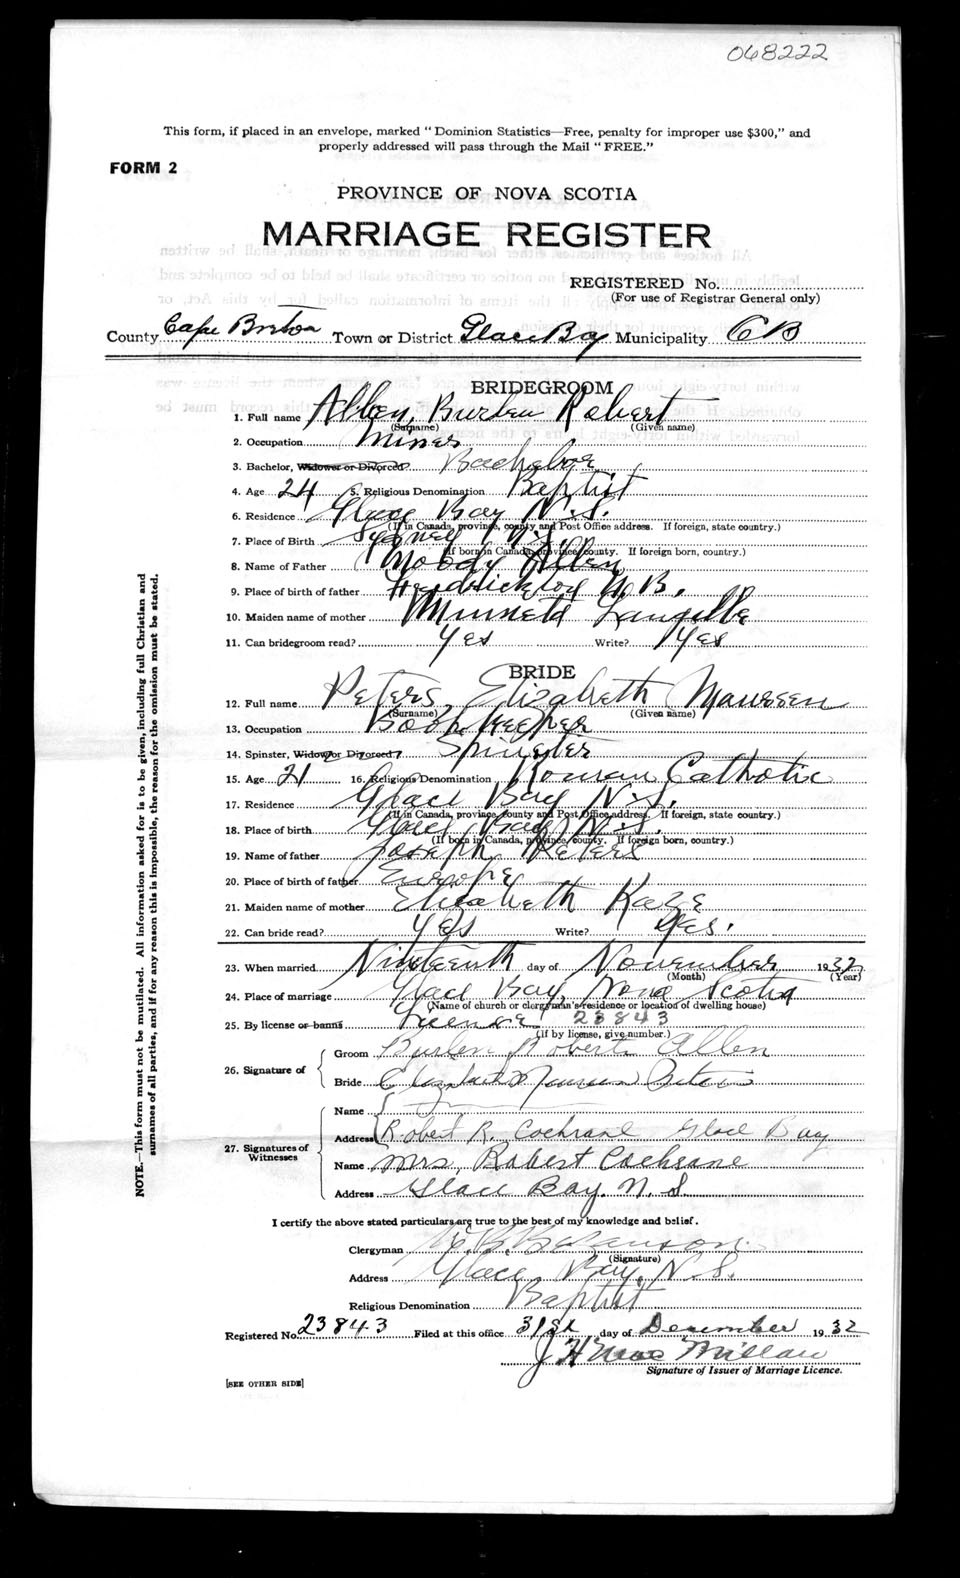 068222
This form, if placed in an envelope, marked "Dominion Statistics—Free, penalty for improper use $300," and
properly addressed will pass through the Mail "FREE."
FORM 2
PROVINCE OF NOVA SCOTIA
MARRIAGE REGISTER
REGISTERED No.
(For use of Registrar General only)
County Cape Breton Town or District Glace Bay Municipality C B
BRIDEGROOM
1. Full name Allen, Burlen Robert
(Surname) (Given name)
2. Occupation Miner
3. Bachelor, Widower or Divorced? Bachelor
4. Age 24 5. Religious Denomination Baptist
6. Residence Glace Bay N.S.
(If in Canada, province, county and Post Office address. If foreign, state country.)
7. Place of Birth Sydney N.S.
(If born in Canada, province, county. If foreign born, country.)
8. Name of Father Moody Allen
9. Place of birth of father N.B.
10. Maiden name of mother Langille
11. Can bridegroom read? Yes Write? Yes
BRIDE
12. Full name Peters, Elizabeth Maureen
(Surname) (Given name)
13. Occupation Book Keeper
14. Spinster, Widow or Divorced? Spinster
15. Age 21 16. Religious Denomination Roman Catholic
17. Residence Glace Bay N.S.
(If in Canada, province, county and Post Office address. If foreign, state country.)
18. Place of birth Glace Bay N.S.
(If born in Canada, province, county. If foreign born, country.)
19. Name of father Joseph Peters
20. Place of birth of father Europe
21. Maiden name of mother Elizabeth
22. Can bride read? Yes Write? Yes.
23. When married Nineteenth day of November 1932
(Month) (Year)
24. Place of marriage Glace Bay, Nova Scotia
(Name of church or clergyman's residence or location of dwelling house)
25. By license or banns License 23843
(If by license, give number.)
26. Signature of
Groom Burlen Robert Allen
Bride Elizabeth Maureen Peters
27. Signatures of Witnesses
Name
Address Robert R. Cochrane Glace Bay
Name Mrs. Robert Cochrane
Address Glace Bay. N. S.
I certify the above stated particulars are true to the best of my knowledge and belief.
Clergyman
(Signature)
Address Glace Bay, N.S.
Religious Denomination Baptist
Registered No. 23843 Filed at this office 31st day of December 1932
J H Mac Millan
Signature of Issuer of Marriage Licence.
[SEE OTHER SIDE]
NOTE.—This form must not be mutilated. All information asked for is to be given, including full Christian and
surnames of all parties, and if for any reason this is impossible, the reason for the omission must be stated.